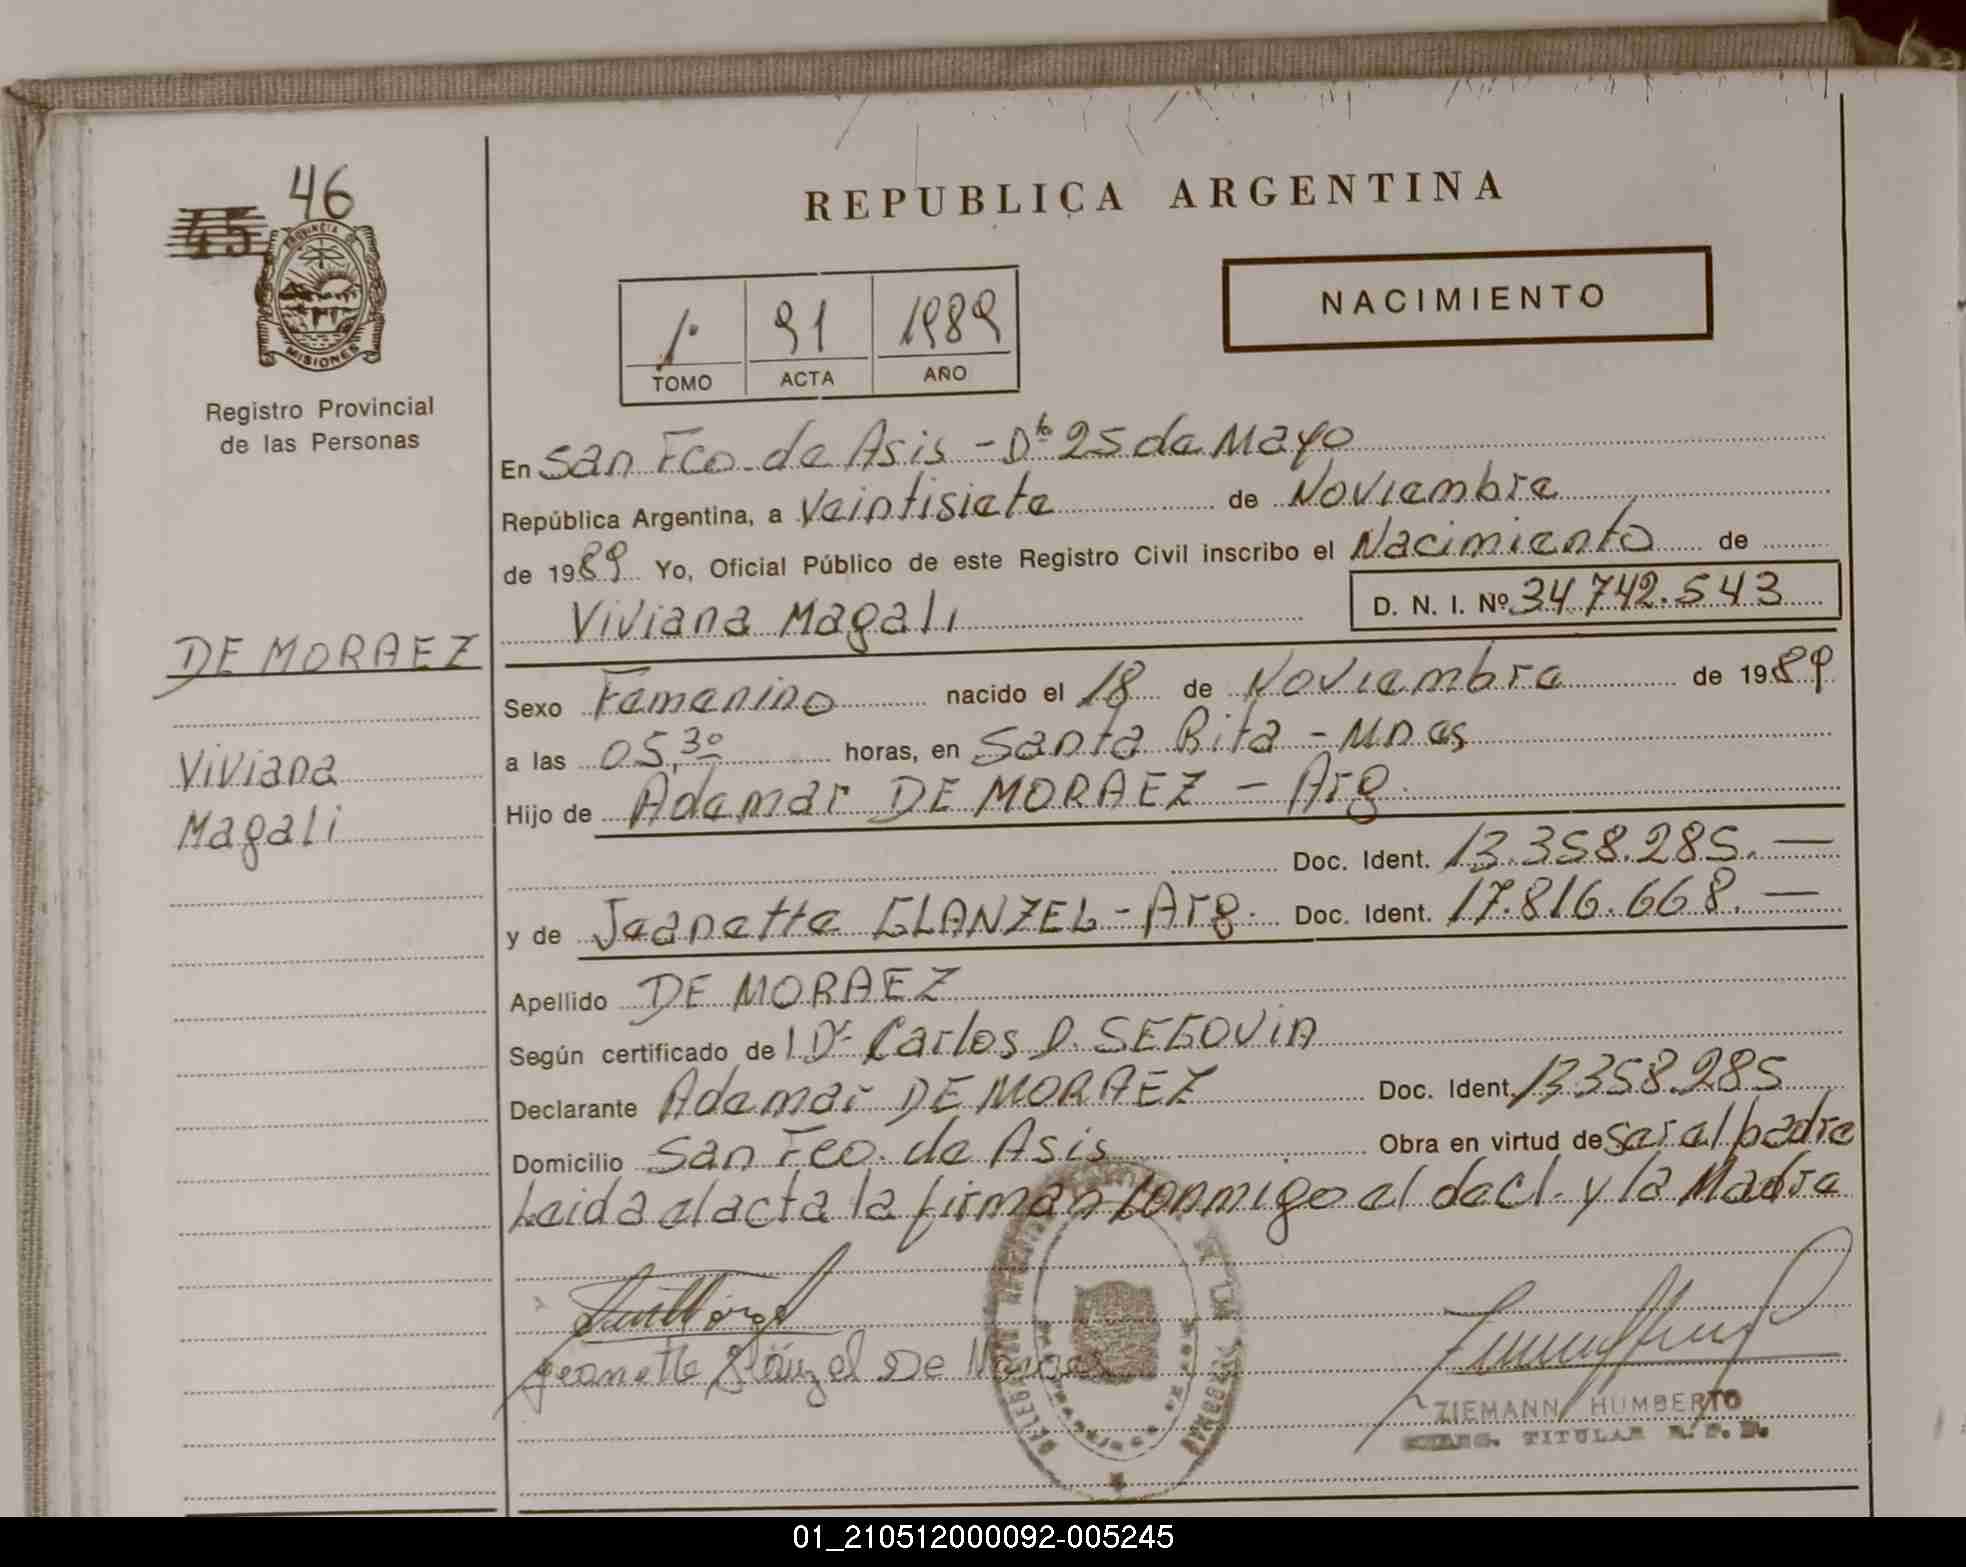 46
45
PROVINCIA DE
MISIONES
Registro Provincial
de las Personas
REPUBLICA ARGENTINA
1º 91 1989
TOMO ACTA AÑO
NACIMIENTO
En San Fco. de Asis - Dto 25 de Mayo
República Argentina, a Veintisiete de Noviembre
de 1989 Yo, Oficial Público de este Registro Civil inscribo el Nacimiento de
Viviana Magali D. N. I. Nº 34.742.543
DE MORAEZ
Viviana
Magali
Sexo Femenino nacido el 18 de Noviembre de 1989
a las 05,30 horas, en Santa Rita - Mnes
Hijo de Ademar DE MORAEZ - Arg.
Doc. Ident. 13.358.285.-
y de Jeanette GLANZEL - Arg. Doc. Ident. 17.816.668.-
Apellido DE MORAEZ
Según certificado de l Dr Carlos D. SEGOVIA
Declarante Ademar DE MORAEZ Doc. Ident. 13358.285
Domicilio San Fco. de Asis Obra en virtud de ser el padre
Leida el acta la firman conmigo el decl. y la Madre
Jeanette Glänzel De Moraez
ZIEMANN HUMBERTO
TITULAR R. P. P.
01_210512000092-005245